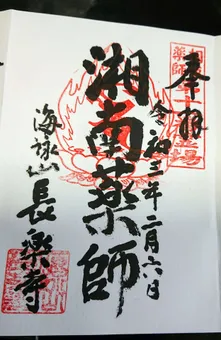 奉拝
令和三年二月六日
湘南薬師
海詠山長楽寺